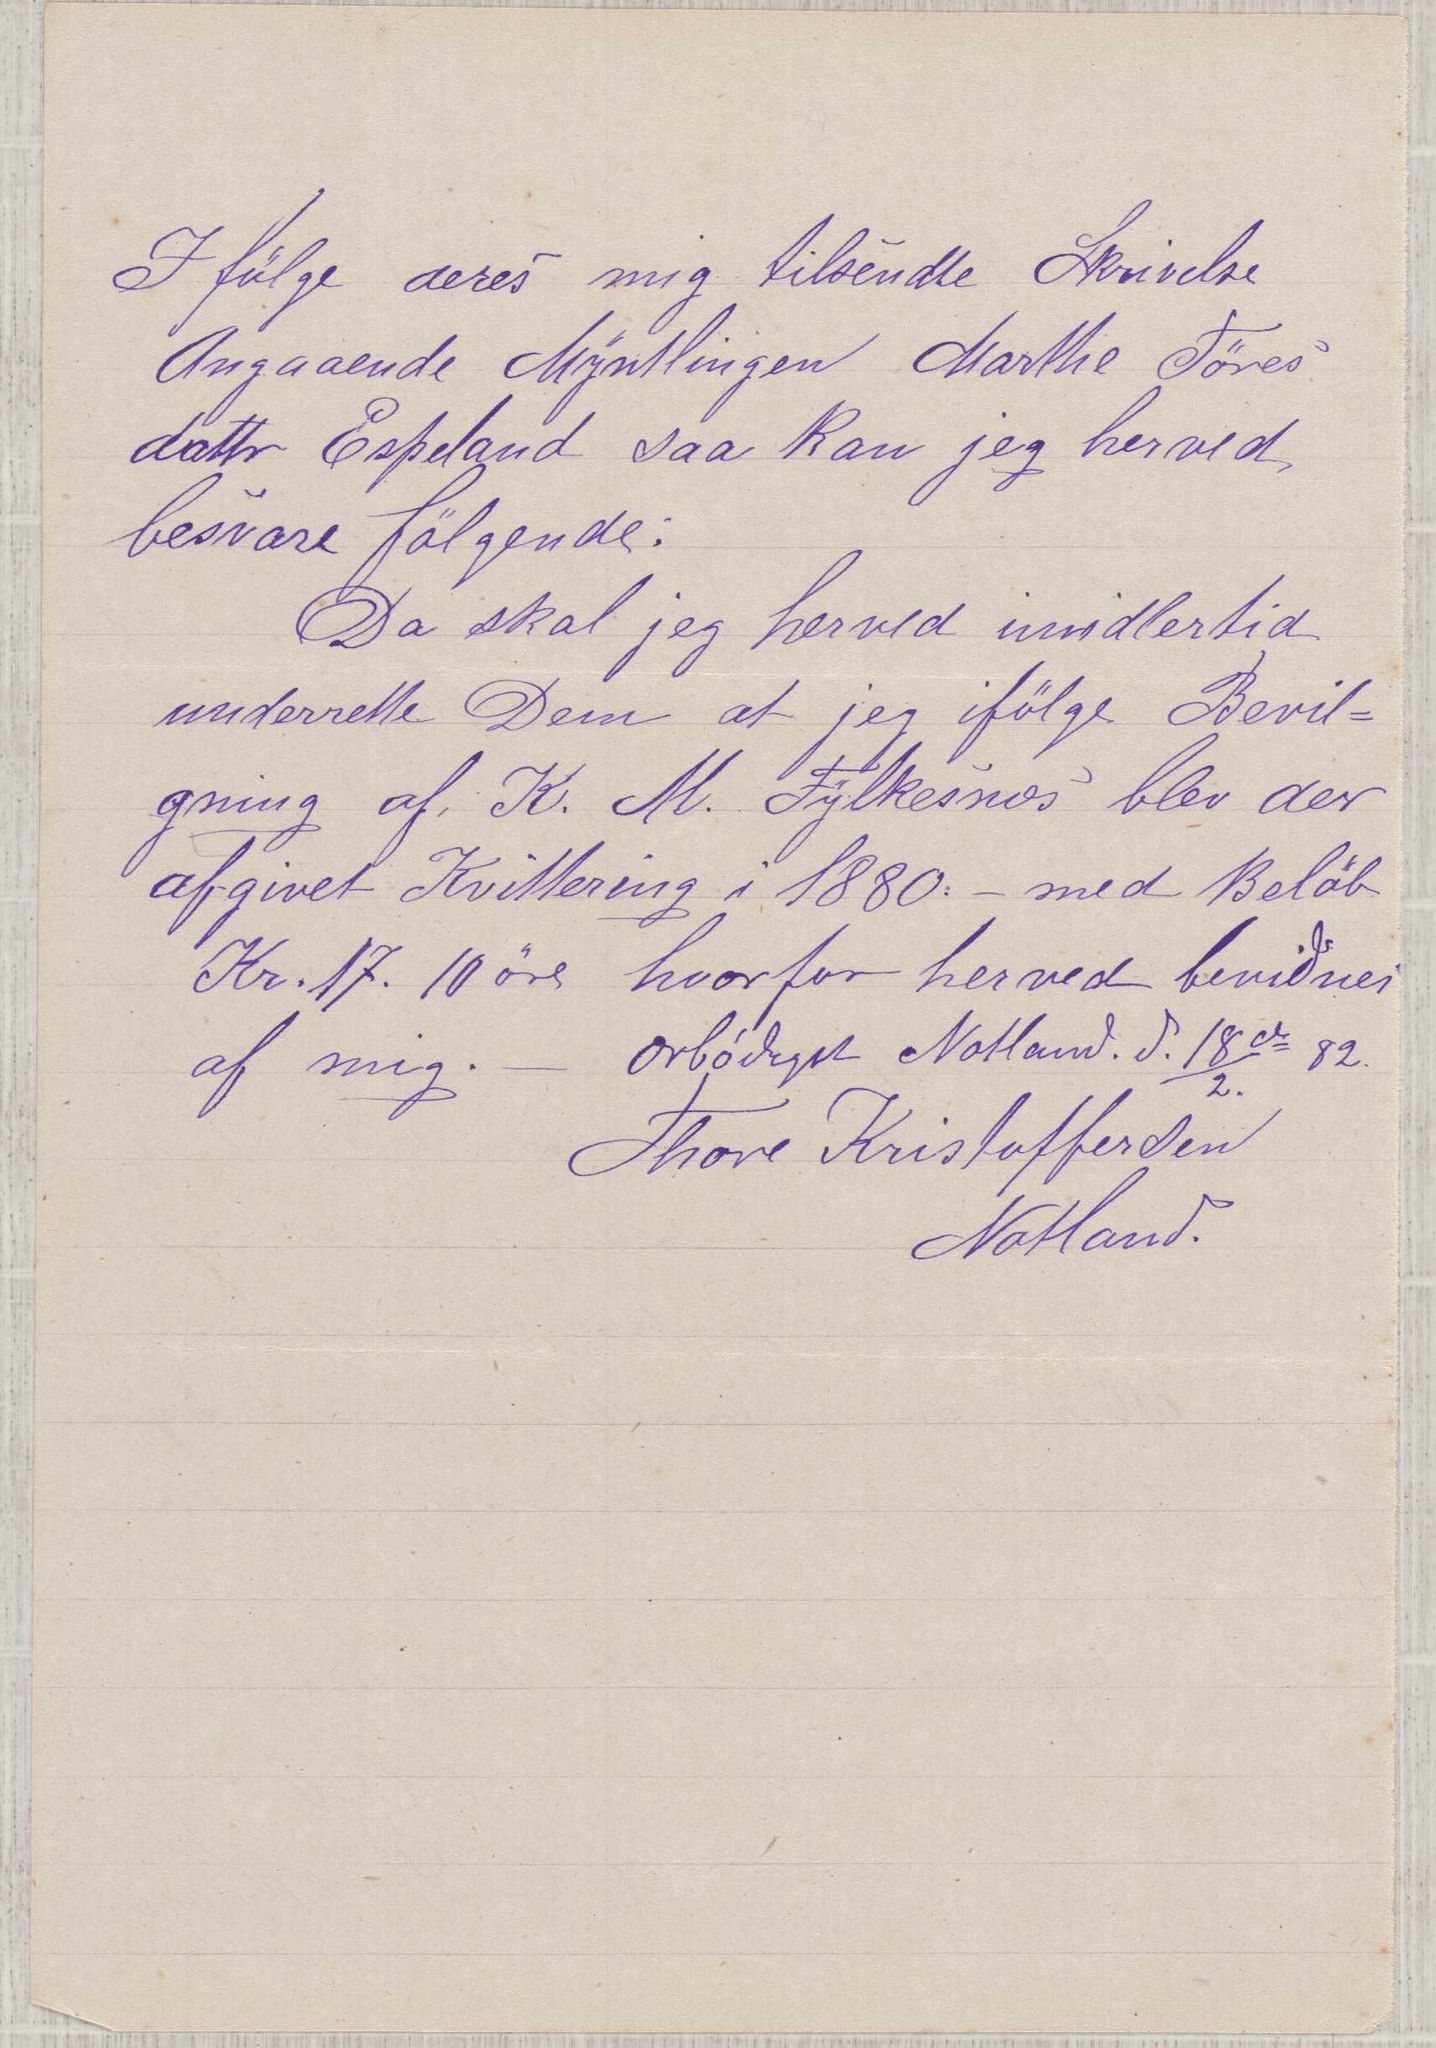 I følge deres mig tilsendte Skrivelse
Angaaende Myntlingen Marthe Töres
dattr Espeland saa kan jeg herved
besvare følgende:
Da skal jeg herved imidlertid
underrette Dem at jeg ifølge Bevil=
gning af K. M. Fylkesnæs blev der
afgivet Kvittering i 1880. – med Beløb
Kr. 17. 10 öre hvorfor herved bevidnes
af mig. — Ærbødigst Notland. d. 18de/2. 82.
Thore Kristoffersen
Notland.